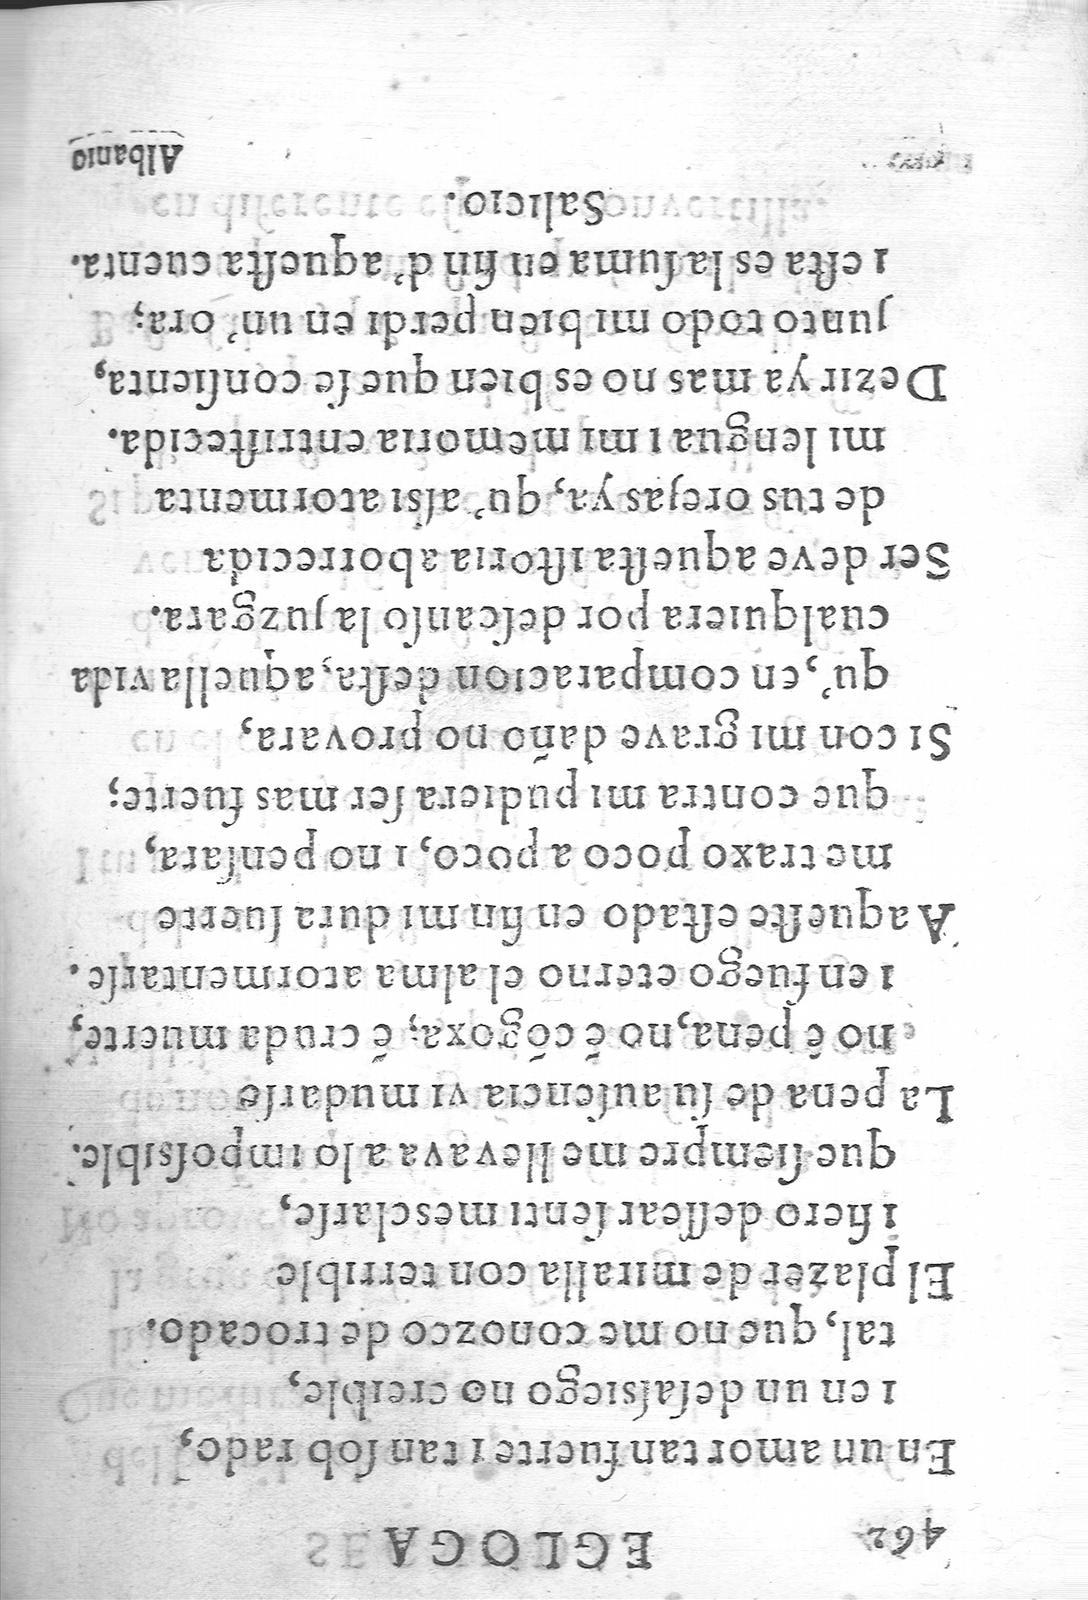 462 EGLOGA
En un amor tan fuerte i tan ſobrado,
i en un deſaſsiego no creible,
tal, que no me conozco de trocado.
El plazer de miralla con terrible
i fiero deſſear ſenti mesclarſe,
que ſiempre me llevava a lo impoſsible.
La pena de ſu auſencia vi mudarſe
no ẽ pena, no ẽ cõgoxa; ẽ cruda muerte,
i en fuego eterno el alma atormentarſe.
A aqueſte eſtado en fin mi dura ſuerte
me traxo poco a poco, i no penſara,
que contra mi pudiera ſer mas fuerte;
Si con mi grave daño no provara,
qu', en comparacion deſta, aquella vida
cualquiera por deſcanſo la juzgara.
Ser deve aqueſta iſtoria aborrecida
de tus orejas ya, qu' aſsi atormenta
mi lengua i mi memoria entriſtecida.
Dezir ya mas no es bien que ſe conſienta,
junto todo mi bien perdi en un' ora;
i eſta es la ſuma en fin d' aqueſta cuenta.
Salicio.
Albanio